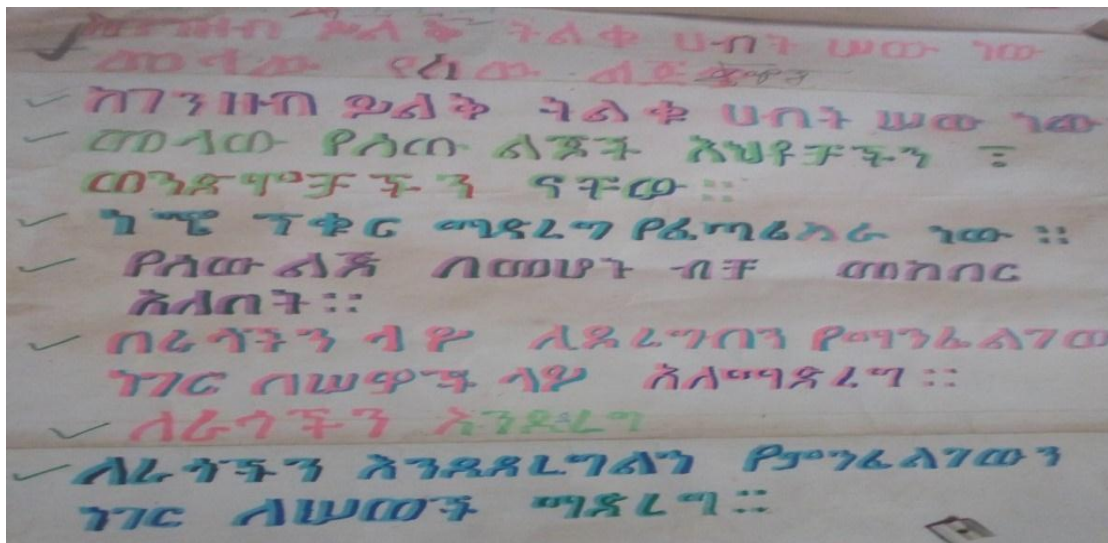 ከገንዘብ ይልቅ ትልቁ ሀብት ሠው ነው
መላው የሰው
ከገንዘብ ይልቅ ትልቁ ሀብት ሠው ነው
መላው የሰው ልጆች እህቶቻችን ፣
ወንድሞቻችን ናቸው ::
ነጭ ጥቁር ማድረግ የፈጣሪ ስራ ነው ::
የሰው ልጅ በመሆኑ ብቻ መከበር
አለበት::
በራሳችን ላይ ሊደረግብን የማንፈልገው
ነገር በሠዎች ላይ አለማድረግ ::
ለራሳችን
ለራሳችን እንዲደረግልን የምንፈልገውን
ነገር ለሠወች ማድረግ ::